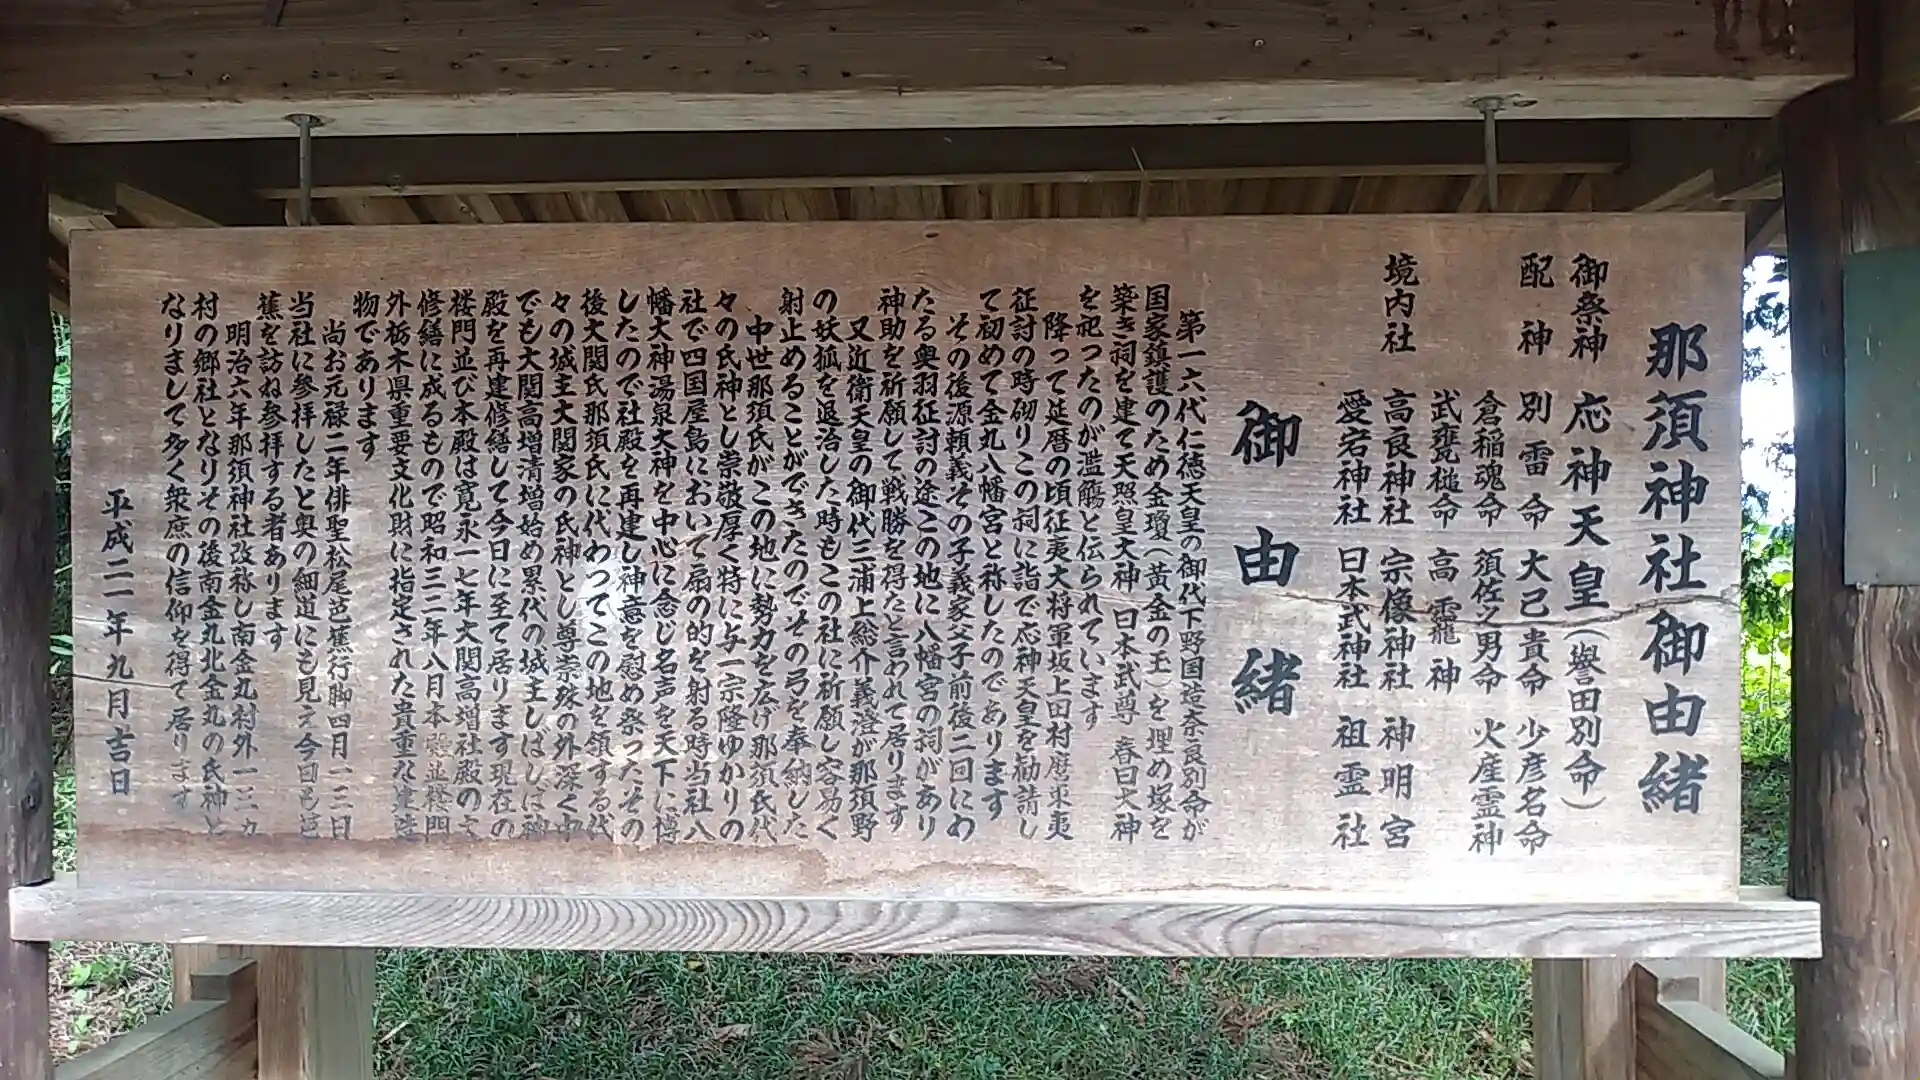 那須神社御由緒
御祭神 応神天皇(誉田別命)
配神 別雷命 大己貴命 少彦名命
倉稲魂命 須佐之男命 火産霊神
武甕槌命 高龗神
境内社 高良神社 宗像神社 神明宮
愛宕神社 日本武神社 祖霊社
御由緒
第一六代仁徳天皇の御代下野国造奈良別命が
国家鎮護のため金瓊(黄金の玉)を埋め塚を
築き祠を建て天照皇大神 日本武尊 春日大神
を祀ったのが濫觴と伝られています
降って延暦の頃征夷大将軍坂上田村麿東夷
征討の時砌りこの祠に詣で応神天皇を勧請し
て初めて金丸八幡宮と称したのであります
その後源頼義その子義家父子前後二回にわ
たる奥羽征討の途この地に八幡宮の祠があり
神助を祈願して戦勝を得たと言われて居ります
又近衛天皇の御代三浦上総介義澄が那須野
の妖狐を退治した時もこの社に祈願し容易く
射止めることができたのでその弓を奉納した
中世那須氏がこの地に勢力を広げ那須氏代
々の氏神とし崇敬厚く特に与一宗隆ゆかりの
社で四国屋島において扇の的を射る時当社八
幡大神湯泉大神を中心に念じ名声を天下に博
したので社殿を再建し神意を慰め祭ったその
後大関氏那須氏に代わってこの地を領する代
々の城主大関家の氏神とし尊崇殊の外深く中
でも大関高増清増始め累代の城主しばしば神
殿を再建修繕して今日に至て居ります現在の
楼門並び本殿は寛永一七年大関高増社殿の大
修繕に成るもので昭和三二年八月本殿並楼門
外栃木県重要文化財に指定された貴重な建造
物であります
尚お元禄二年俳聖松尾芭蕉行脚四月一三日
当社に参拝したと奥の細道にも見え今日も芭
蕉を訪ね参拝する者あります
明治六年那須神社改称し南金丸村外一三ヵ
村の郷社となりその後南金丸北金丸の氏神と
なりまして多く衆庶の信仰を得て居ります
平成二一年九月吉日